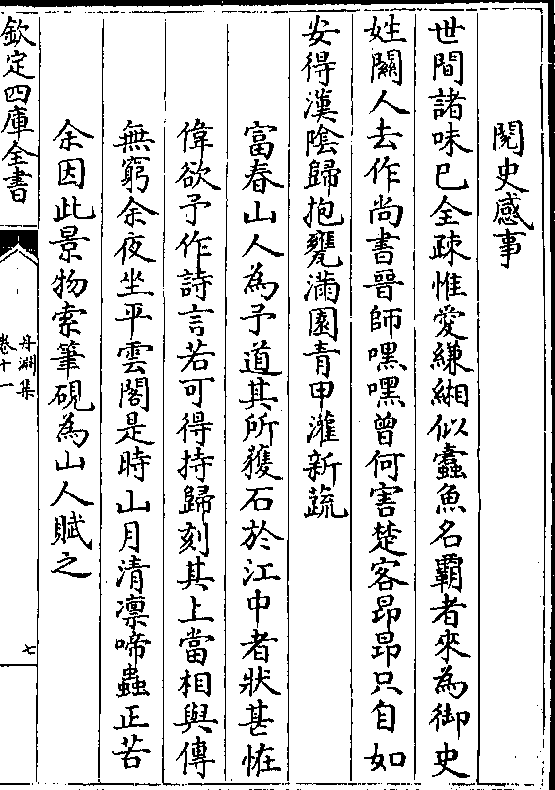 閱史感事
世間諸味已全疎惟愛縑緗似蠹魚名霸者來為御史
姓闞人去作尚書晉師嘿嘿曾何害楚客昂昂只自如
安得漢陰歸抱甕滿園青甲灌新蔬
富春山人為予道其所獲石於江中者狀甚恠
偉欲予作詩言若可得持歸刻其上當相與傳
無窮余夜坐平雲閣是時山月清凛啼蟲正苦
余因此景物索筆硯為山人賦之
欽定四庫全書
丹淵集
卷十一
七